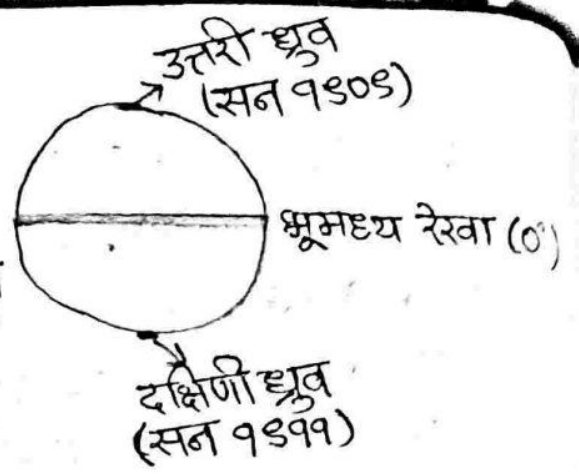 उत्तरी ध्रुव
(सन १९०९)
भूमध्य रेखा (0°)
दक्षिणी ध्रुव
(सन १९११)